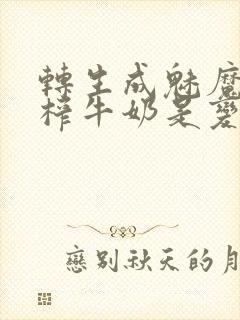 轉生成魅魔
榨牛奶是變
戀別秋天的月